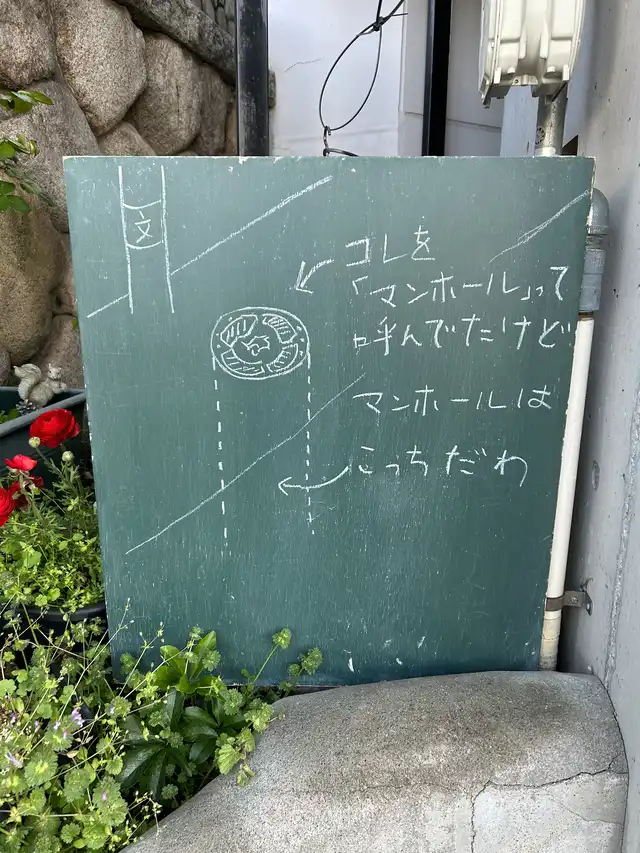 文
コレを
「マンホール」って
呼んでたけど
マンホールは
こっちだわ